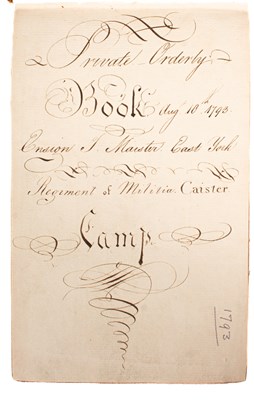 Private Orderly
Book Aug 10th 1793
Ensign T Maister East York
Regiment of Militia Caister
Camp
1793